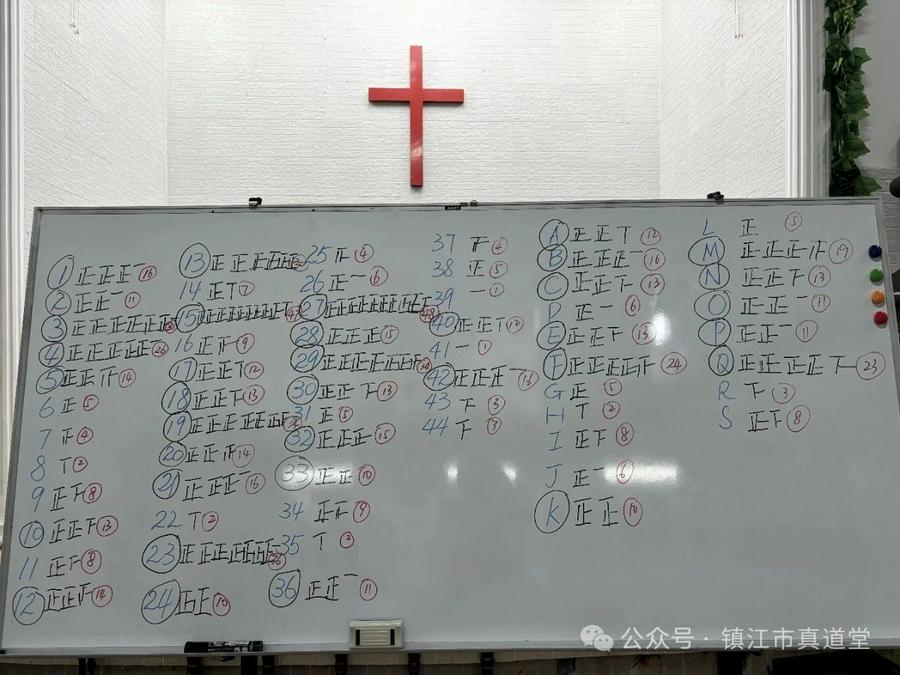 1 正正正一 16
2 正正一 11
3 正正正正正正
4 正正正正正 26
5 正正 14
6 正 5
7 4
8 T 2
9 正下 8
10 正正下 13
11 正下 8
12 正正 14
13 正正正正正
14 正T 7
15 正正正正正正正正
16 正 9
17 正正T 12
18 正正下 13
19 正正正正正正
20 正正 14
21 正正正一 16
22 T 2
23 正正正正正正正
24 正正 10
25 4
26 正一 6
27 正正正正正正正正正
28 正正正 15
29 正正正正正正
30 正正下 13
31 正 5
32 正正正 15
33 正正 10
34 正 9
35 T 2
36 正正一 11
37 4
38 正 5
39 一 1
40 正正T 12
41 一 1
42 正正正一 16
43 下 3
44 下 3
A 正正T 12
B 正正正一 16
C 正正下 13
D 正一 6
E 正正下 13
F 正正正正 24
G 正 5
H T 2
I 正下 8
J 正一 6
K 正正 10
L 正 5
M 正正正 19
N 正正下 13
O 正正一 11
P 正正一 11
Q 正正正正下 23
R 下 3
S 正下 8
公众号 · 镇江市真道堂